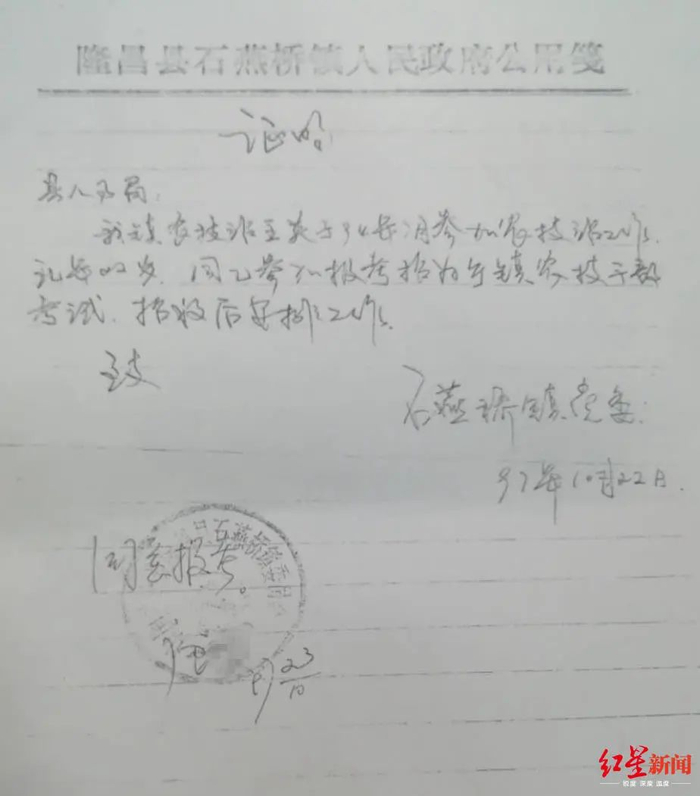 隆昌县石燕桥镇人民政府公用笺
证明
县人事局：
我镇农技站王英于94年 月参加农技站工作。
同意参加报考招为乡镇农技干部
考试，招收后安排工作。
致
石燕桥镇党委
97年10月22日
同意报考。
97 23/10
石燕桥镇委员
红星新闻
锐度 深度 温度